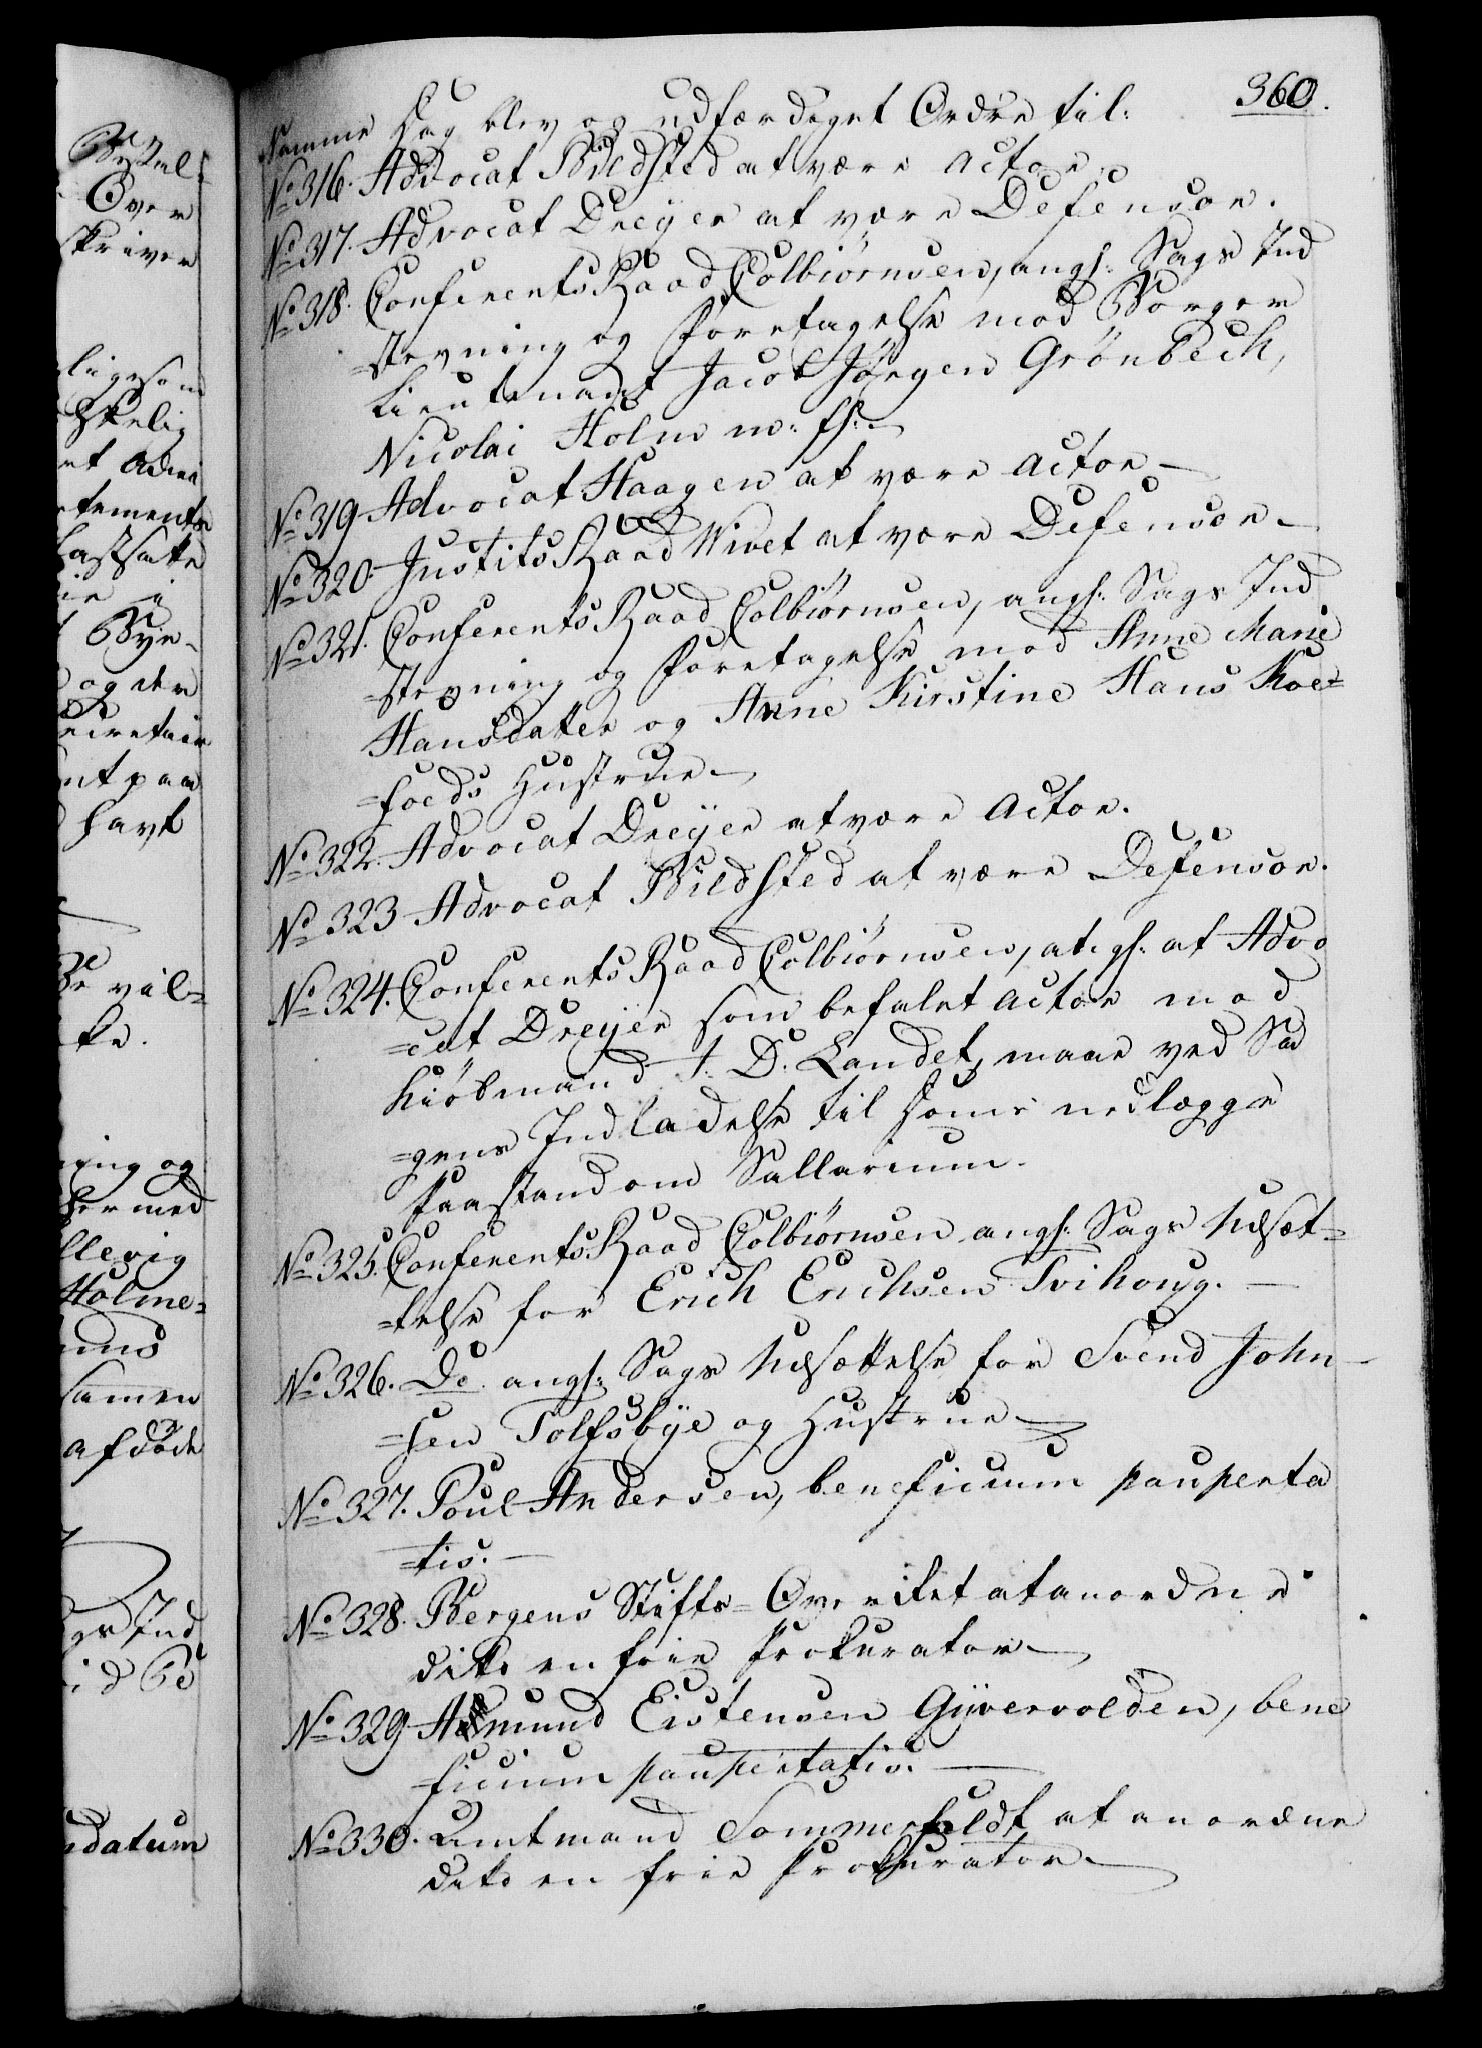 360.
Samme Dag blev og udfærdiget Ordre til:
No 316. Advocat Bildsted at være Actor.
No 317. Advocat Dreyer at være Defensor.
No 318. ConferentsRaad Colbiørnsen, angs: Sags Ind
=stevning og Foretagelse mod Borger
Lieutenant Jacob Jörgen Grönbech,
Nicolai Holm m: fl:
No 319 Advocat Haagen at være Actor
No 320. JustitsRaad Wivet at være Defensor
No 321. ConferentsRaad Colbiørnsen, angs: Sags Ind
=stevning og Foretagelse mod Anne Marie
Hansdatter og Anne Kirstine Hans Koe=
=foeds Hustrue
No 322. Advocat Dreyer at være Actor.
No 323 Advocat Bildsted at være Defensor.
No 324. ConferentsRaad Colbiørnsen, at gs: at Advo
=cat Dreyer som befalet Actor mod
Kiöbmand J: D: Landet, maae ved Sa
=gens Indladelse til Doms nedlægge
Paastand om Sallarium.
No 325. ConferentsRaad Colbiørnsen angs: Sags Udsæt=
=telse for Erich Erichsen Tvihoug.
No 326. Do angs: Sags Udsættelse for Svend John-
=sen Tolfsbye og Hustrue
No 327. Poul Andersen, beneficium pauperta
=tis.
No 328. Bergens Stifts=Øvrighet at anordne
dito en frie Prokurator
No 329 Asmund Eistensen Gijvervolden, bene
=ficium paupertatis.
No 330. Amtmand Sommerfeldt at anordne
dito en frie Prokurator
Over
skriver
ligesom
et Admi
Bye-
og den
Secretair
nt paa
havt
vil=
ning og
her med
llevig
Holme=
samen
afdöde
gs Ind
ndatum